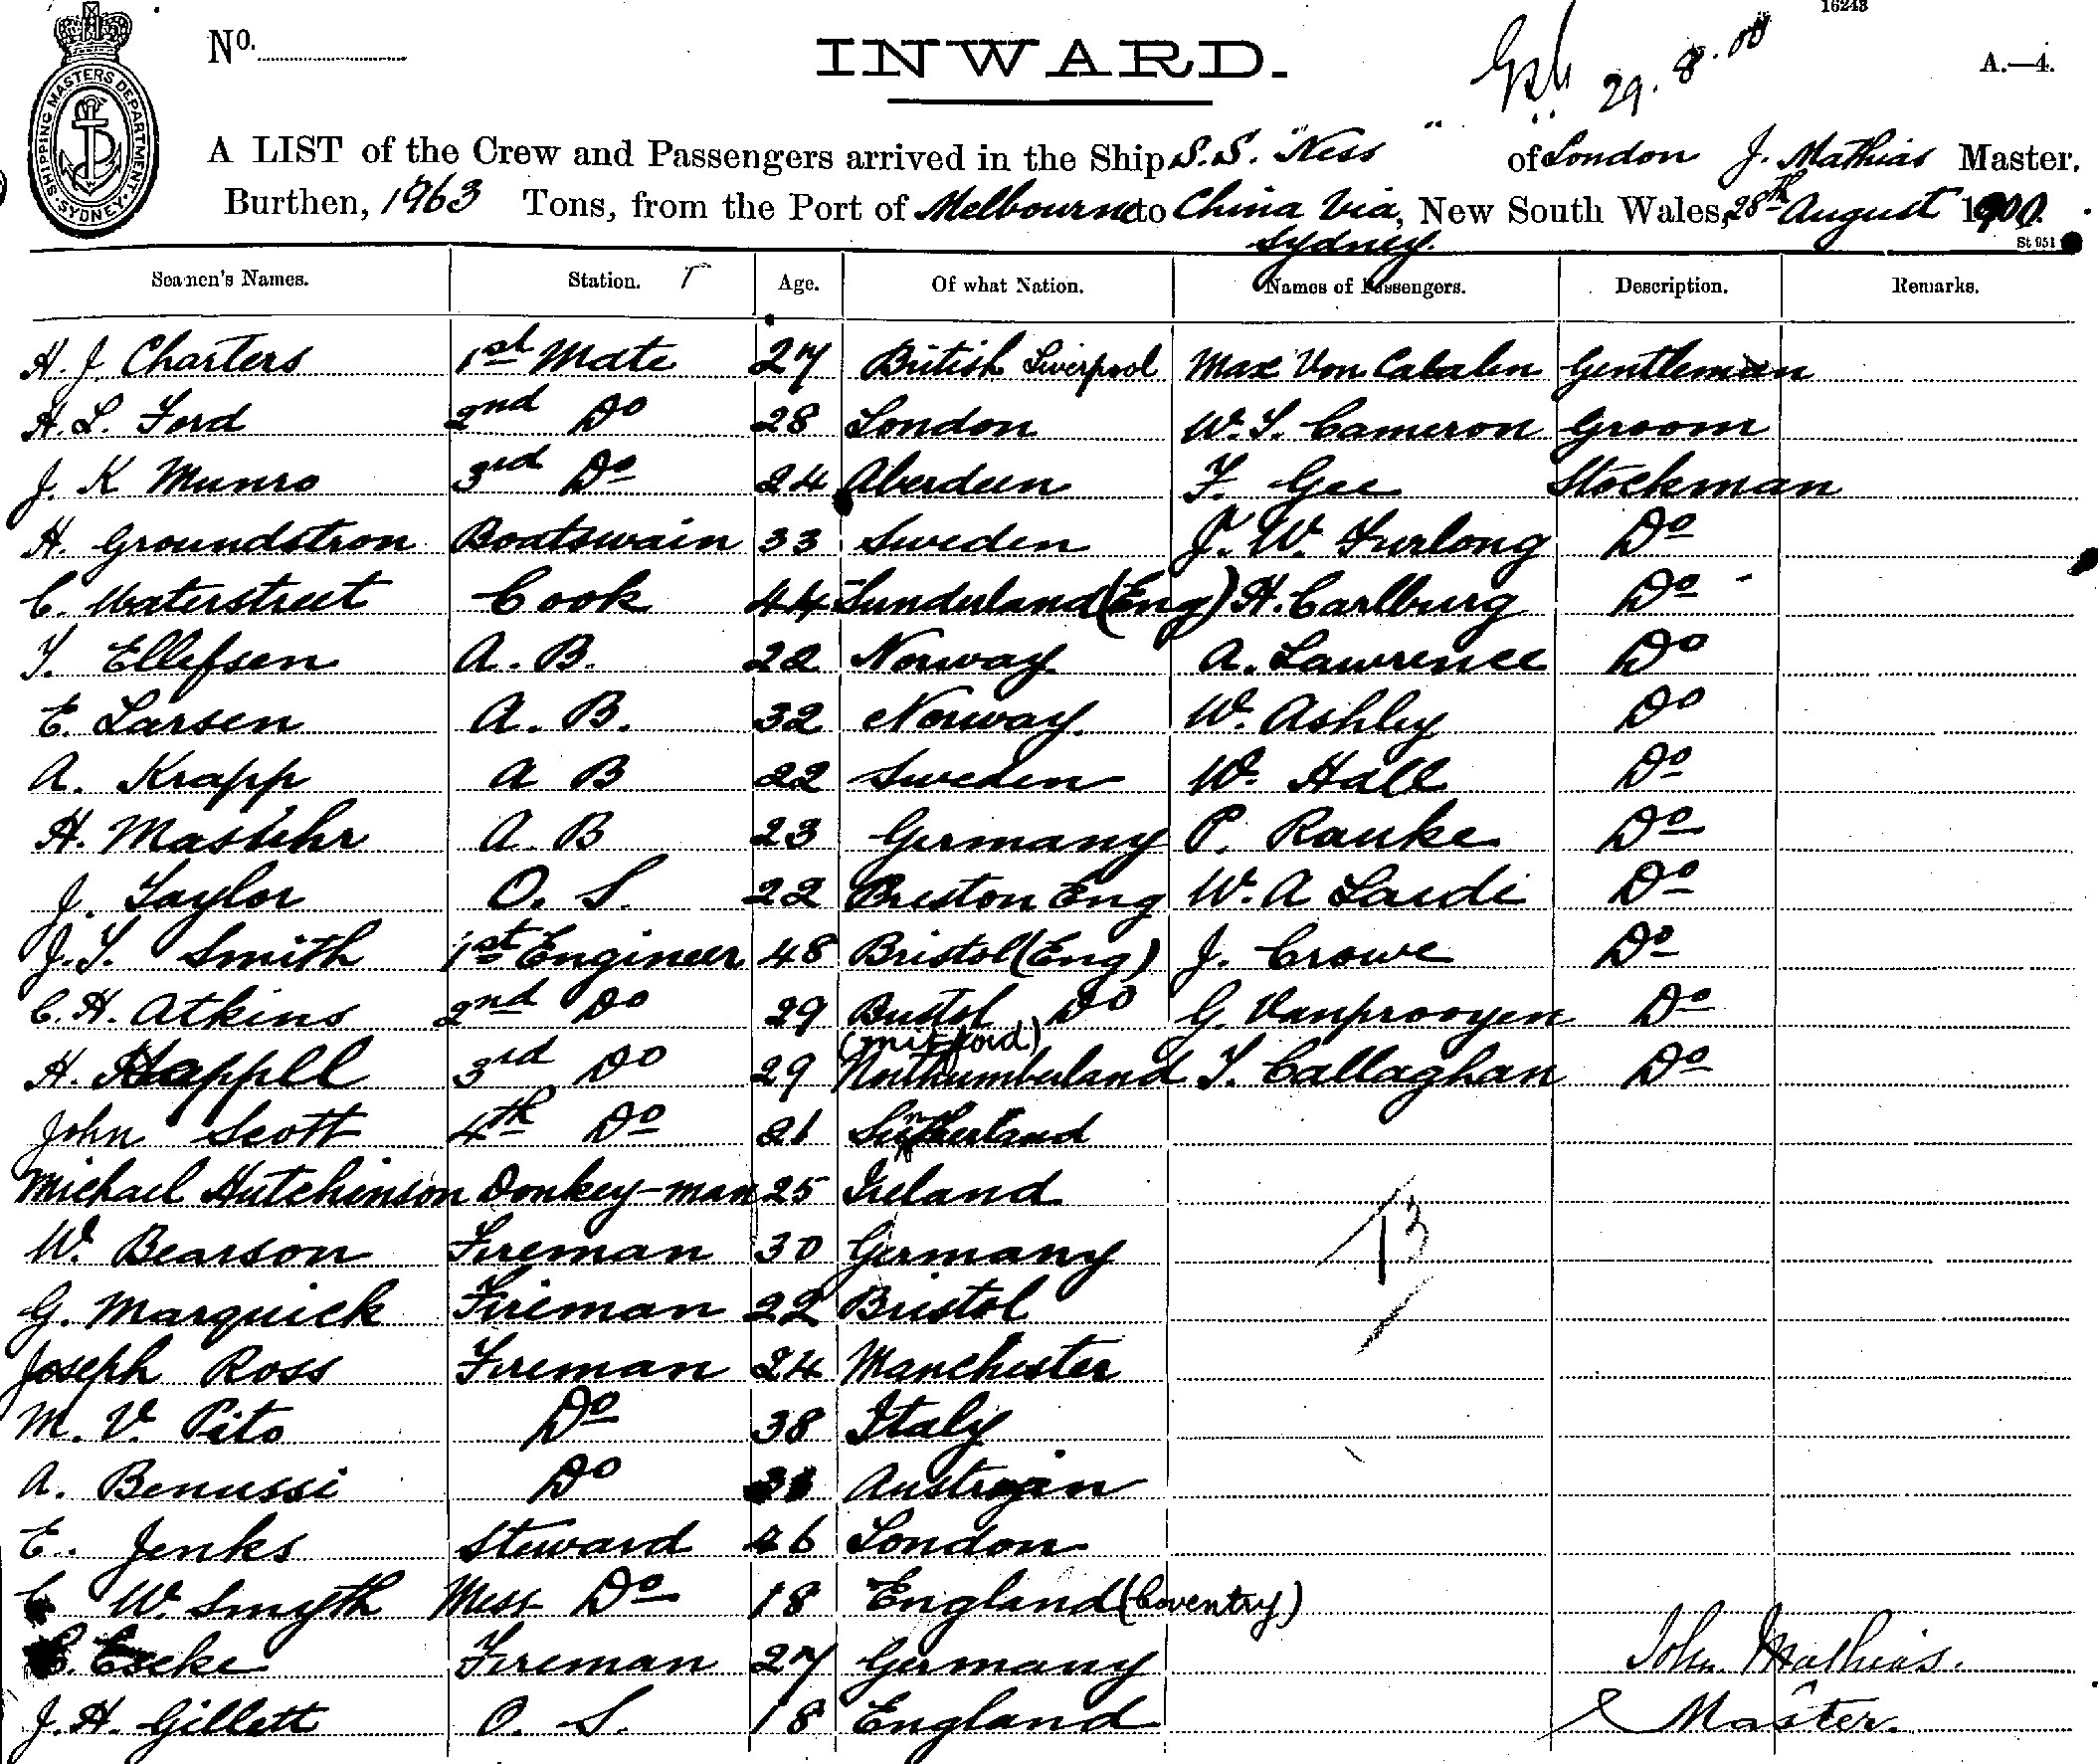 16243
No.
INWARD.
29.8.00
A.—4.
SHIPPING MASTERS DEPARTMENT. SYDNEY.
A LIST of the Crew and Passengers arrived in the Ship S.S. "Ness" of London J. Mathias Master.
Burthen, 1963 Tons, from the Port of Melbourne to China Via Sydney, New South Wales, 28th August 1900.
St 951
Seamen's Names. Station. Age. Of what Nation. Names of Passengers. Description. Remarks.
H. J. Charters 1st Mate 27 British Liverpool Max Von Cabalen Gentleman
H. L. Ford 2nd Do 28 London W. T. Cameron Groom
J. K Munro 3rd Do 24 Aberdeen F. Gee Stockman
H. Groundstron Boatswain 33 Sweden J. W. Furlong Do
C. Waterstreet Cook 44 Sunderland (Eng) H. Carlburg Do
T. Ellefsen A. B. 22 Norway A. Lawrence Do
E. Larsen A. B. 32 Norway W. Ashley Do
A. Krapp A B 22 Sweden W. Hall Do
H. A. B 23 Germany P. Rauke Do
J. Taylor O. S. 22 Preston Eng W. A Do
J. T. Smith 1st Engineer 48 Bristol (Eng) J. Crowe Do
C. H. Atkins 2nd Do 29 Bristol Do G. Vanprooyen Do
H. Happell 3rd Do 29 (Mitford) Northumberland T. Callaghan Do
John Scott 4th Do 21
Michael Hutchinson Donkey-man 25 Ireland
13
W. Bearson Fireman 30 Germany
G. Marquick Fireman 22 Bristol
Joseph Ross Fireman 24 Manchester
M. V. Pito Do 38 Italy
A. Benussi Do Austrian
E. Jenks Steward 46 London
C W. Smyth Mess Do 18 England (Coventry)
Fireman 27 Germany
J. H. Gillett O. S. 18 England
John Mathias.
Master.